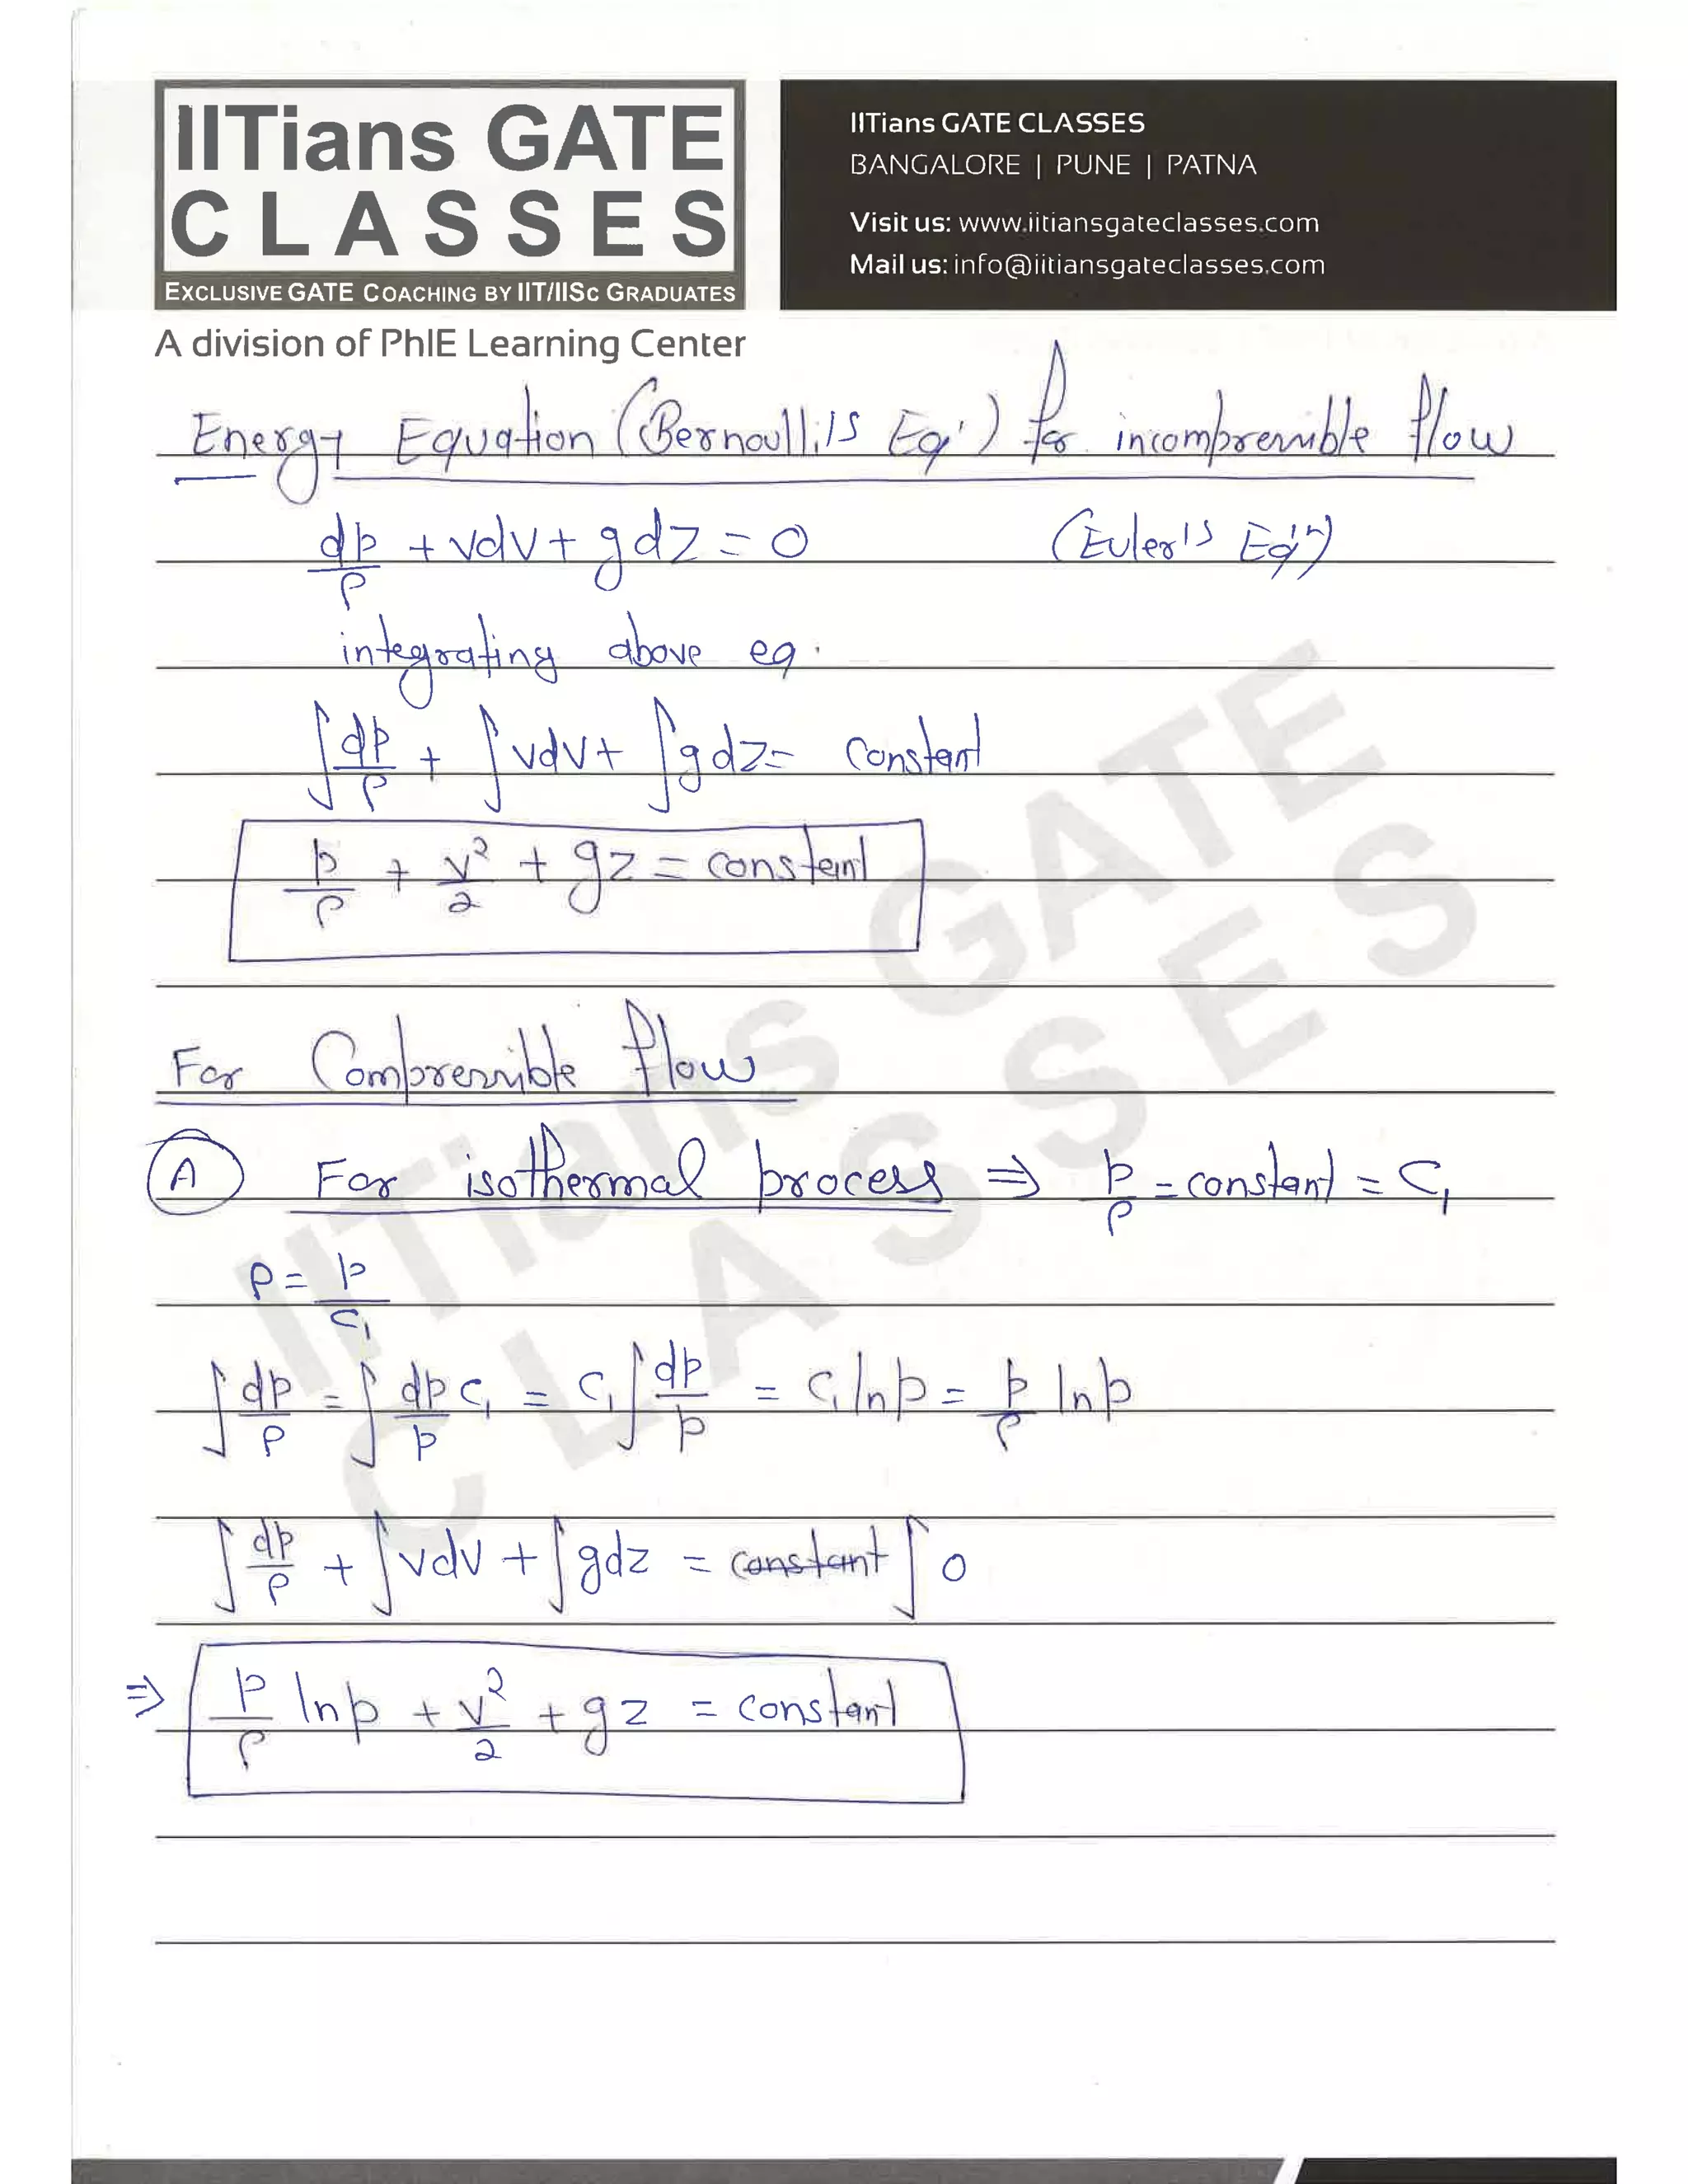 IITians GATE
CLASSES
EXCLUSIVE GATE COACHING BY IIT/IISc GRADUATES
A division of PhIE Learning Center
IITians GATE CLASSES
BANGALORE | PUNE | PATNA
Visit us: www.iitiansgateclasses.com
Mail us: info@iitiansgateclasses.com
Energy Equation (Bernoulli's Eqn) for incompressible flow
dp/ρ + vdv + gdz = 0 (Euler's Eqn)
integrating above eq.
∫dp/ρ + ∫vdv + ∫gdz = constant
p/ρ + v²/2 + gz = constant
For Compressible flow
(A) For isothermal process ⇒ p/ρ = constant = C₁
ρ = p/C₁
∫dp/ρ = ∫dp C₁/p = C₁∫dp/p = C₁ ln p = p/ρ ln p
∫dp/ρ + ∫vdv + ∫gdz = constant ∫0
⇒ p/ρ ln p + v²/2 + gz = constant
IITians GATE
CLASSES